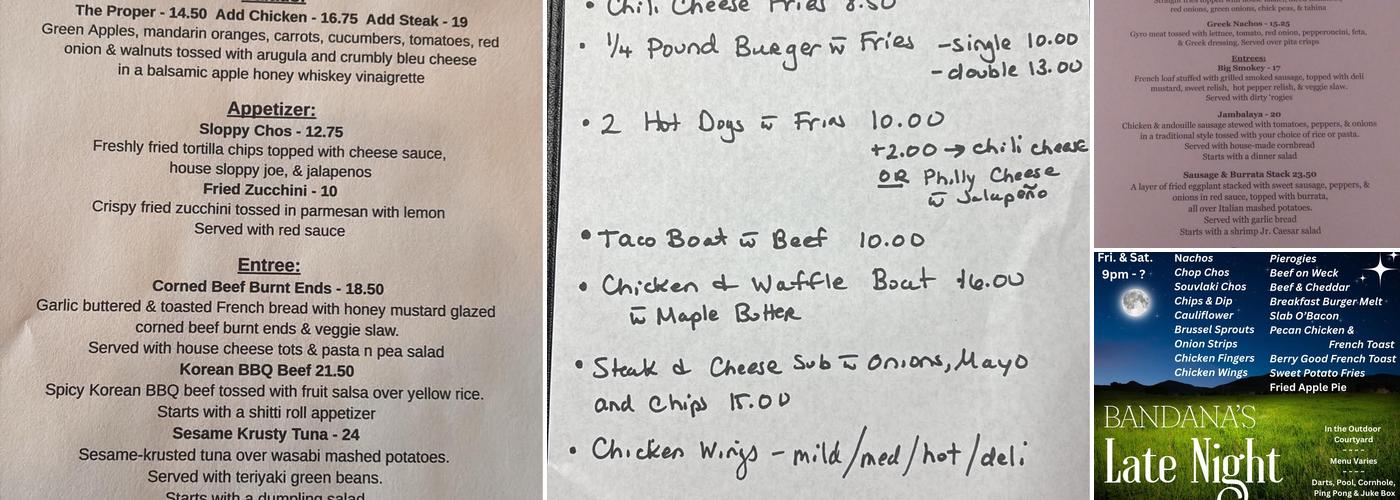 The Proper - 14.50 Add Chicken - 16.75 Add Steak - 19
Green Apples, mandarin oranges, carrots, cucumbers, tomatoes, red
onion & walnuts tossed with arugula and crumbly bleu cheese
in a balsamic apple honey whiskey vinaigrette
Appetizer:
Sloppy Chos - 12.75
Freshly fried tortilla chips topped with cheese sauce,
house sloppy joe, & jalapenos
Fried Zucchini - 10
Crispy fried zucchini tossed in parmesan with lemon
Served with red sauce
Entree:
Corned Beef Burnt Ends - 18.50
Garlic buttered & toasted French bread with honey mustard glazed
corned beef burnt ends & veggie slaw.
Served with house cheese tots & pasta n pea salad
Korean BBQ Beef 21.50
Spicy Korean BBQ beef tossed with fruit salsa over yellow rice.
Starts with a shitti roll appetizer
Sesame Krusty Tuna - 24
Sesame-krusted tuna over wasabi mashed potatoes.
Served with teriyaki green beans.
Starts with a dumpling salad
• Chili Cheese Fries 8.50
• 1/4 Pound Burger w̄ Fries - single 10.00
- double 13.00
• 2 Hot Dogs w̄ Fries 10.00
+2.00 → chili cheese
OR Philly Cheese
w̄ Jalapeño
• Taco Boat w̄ Beef 10.00
• Chicken & Waffle Boat 16.00
w̄ Maple Butter
• Steak & Cheese Sub w̄ Onions, Mayo
and Chips 15.00
• Chicken Wings - mild/med/hot/deli
red onions, green onions, chick peas, & tahina
Greek Nachos - 15.25
Gyro meat tossed with lettuce, tomato, red onion, pepperoncini, feta,
& Greek dressing. Served over pita crisps
Entrees:
Big Smokey - 17
French loaf stuffed with grilled smoked sausage, topped with deli
mustard, sweet relish, hot pepper relish, & veggie slaw.
Served with dirty 'rogies
Jambalaya - 20
Chicken & andouille sausage stewed with tomatoes, peppers, & onions
in a traditional style topped with your choice of rice or pasta.
Served with house-made cornbread
Starts with a dinner salad
Sausage & Burrata Stack 23.50
A layer of fried eggplant stacked with sweet sausage, peppers, &
onions in red sauce, topped with burrata,
all over Italian mashed potatoes.
Served with garlic bread
Starts with a shrimp Jr. Caesar salad
Fri. & Sat.
9pm - ?
Nachos
Chop Chos
Souvlaki Chos
Chips & Dip
Cauliflower
Brussel Sprouts
Onion Strips
Chicken Fingers
Chicken Wings
Pierogies
Beef on Weck
Beef & Cheddar
Breakfast Burger Melt
Slab O'Bacon
Pecan Chicken &
French Toast
Berry Good French Toast
Sweet Potato Fries
Fried Apple Pie
BANDANA'S
Late Night
In the Outdoor
Courtyard
- - - -
Menu Varies
- - - -
Darts, Pool, Cornhole,
Ping Pong & Juke Box